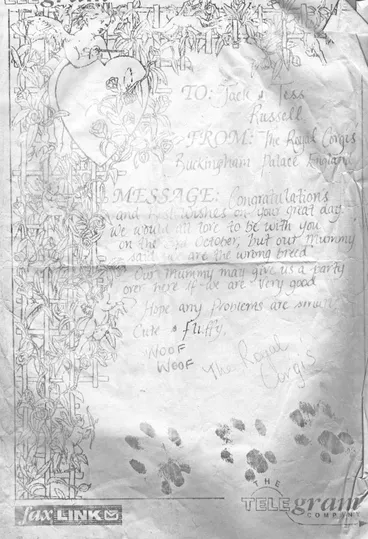 Telegram
TO: Jack & Tess
Russell
FROM: The Royal Corgis
Buckingham Palace England
MESSAGE: Congratulations
and best wishes on your great day
We would all love to be with you
on the October, but our Mummy
said we are the wrong breed
Our Mummy may give us a party
over here if we are very good
Hope any problems are small
Cute & fluffy.
WOOF
WOOF
The Royal
Corgis
fax LINK
THE
TELEgram
COMPANY